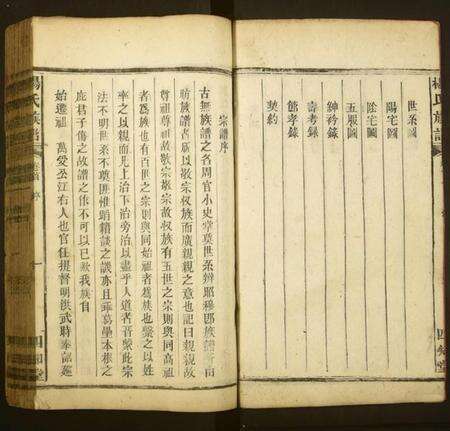 楊氏族譜
四知堂
世系圖
陽宅圖
陰宅圖
五服圖
紳衿錄
壽考錄
節孝錄
契約
宗譜序
古無族譜之名周官小史掌奠世系辨昭穆即族譜
族譜者所以敬宗收族而廣親親之意也記曰親親故
尊祖尊祖故敬宗敬宗故收族有五世之宗則與同高祖
者為族也有百世之宗則與同始祖者為族也繫之以姓
率之以親而凡上治下治旁治以盡乎人道者
法不明世系不奠
君子傷之故譜之作不可以已歟我族自
始遷祖 萬愛公江右人也官任提督明洪武時奉
楊氏族譜
序
四知堂